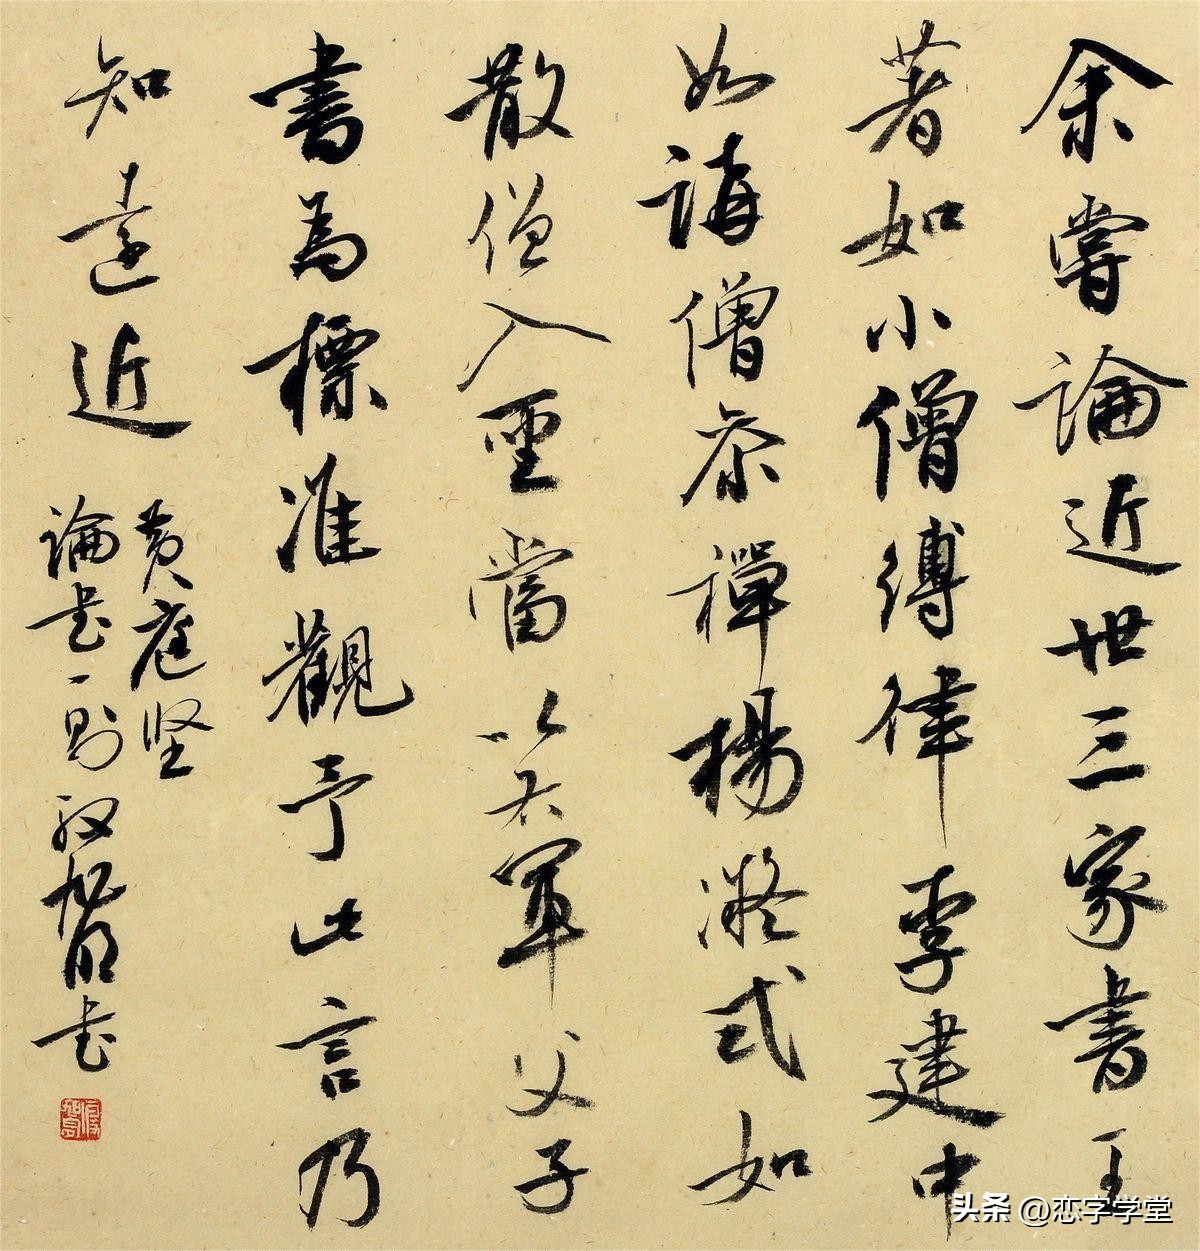 余嘗論近世三家書王
著如小僧縛律李建中
如講僧参禪楊凝式如
散僧入聖當以右軍父子
書為標准觀予此言乃
知遠近
黄庭坚
論书一則
书
头条 @恋字学堂